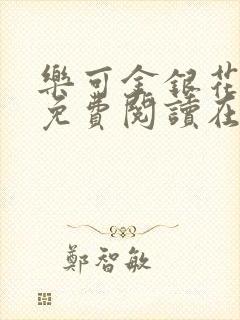 樂可金銀花
免費閱讀在
鄭智敏